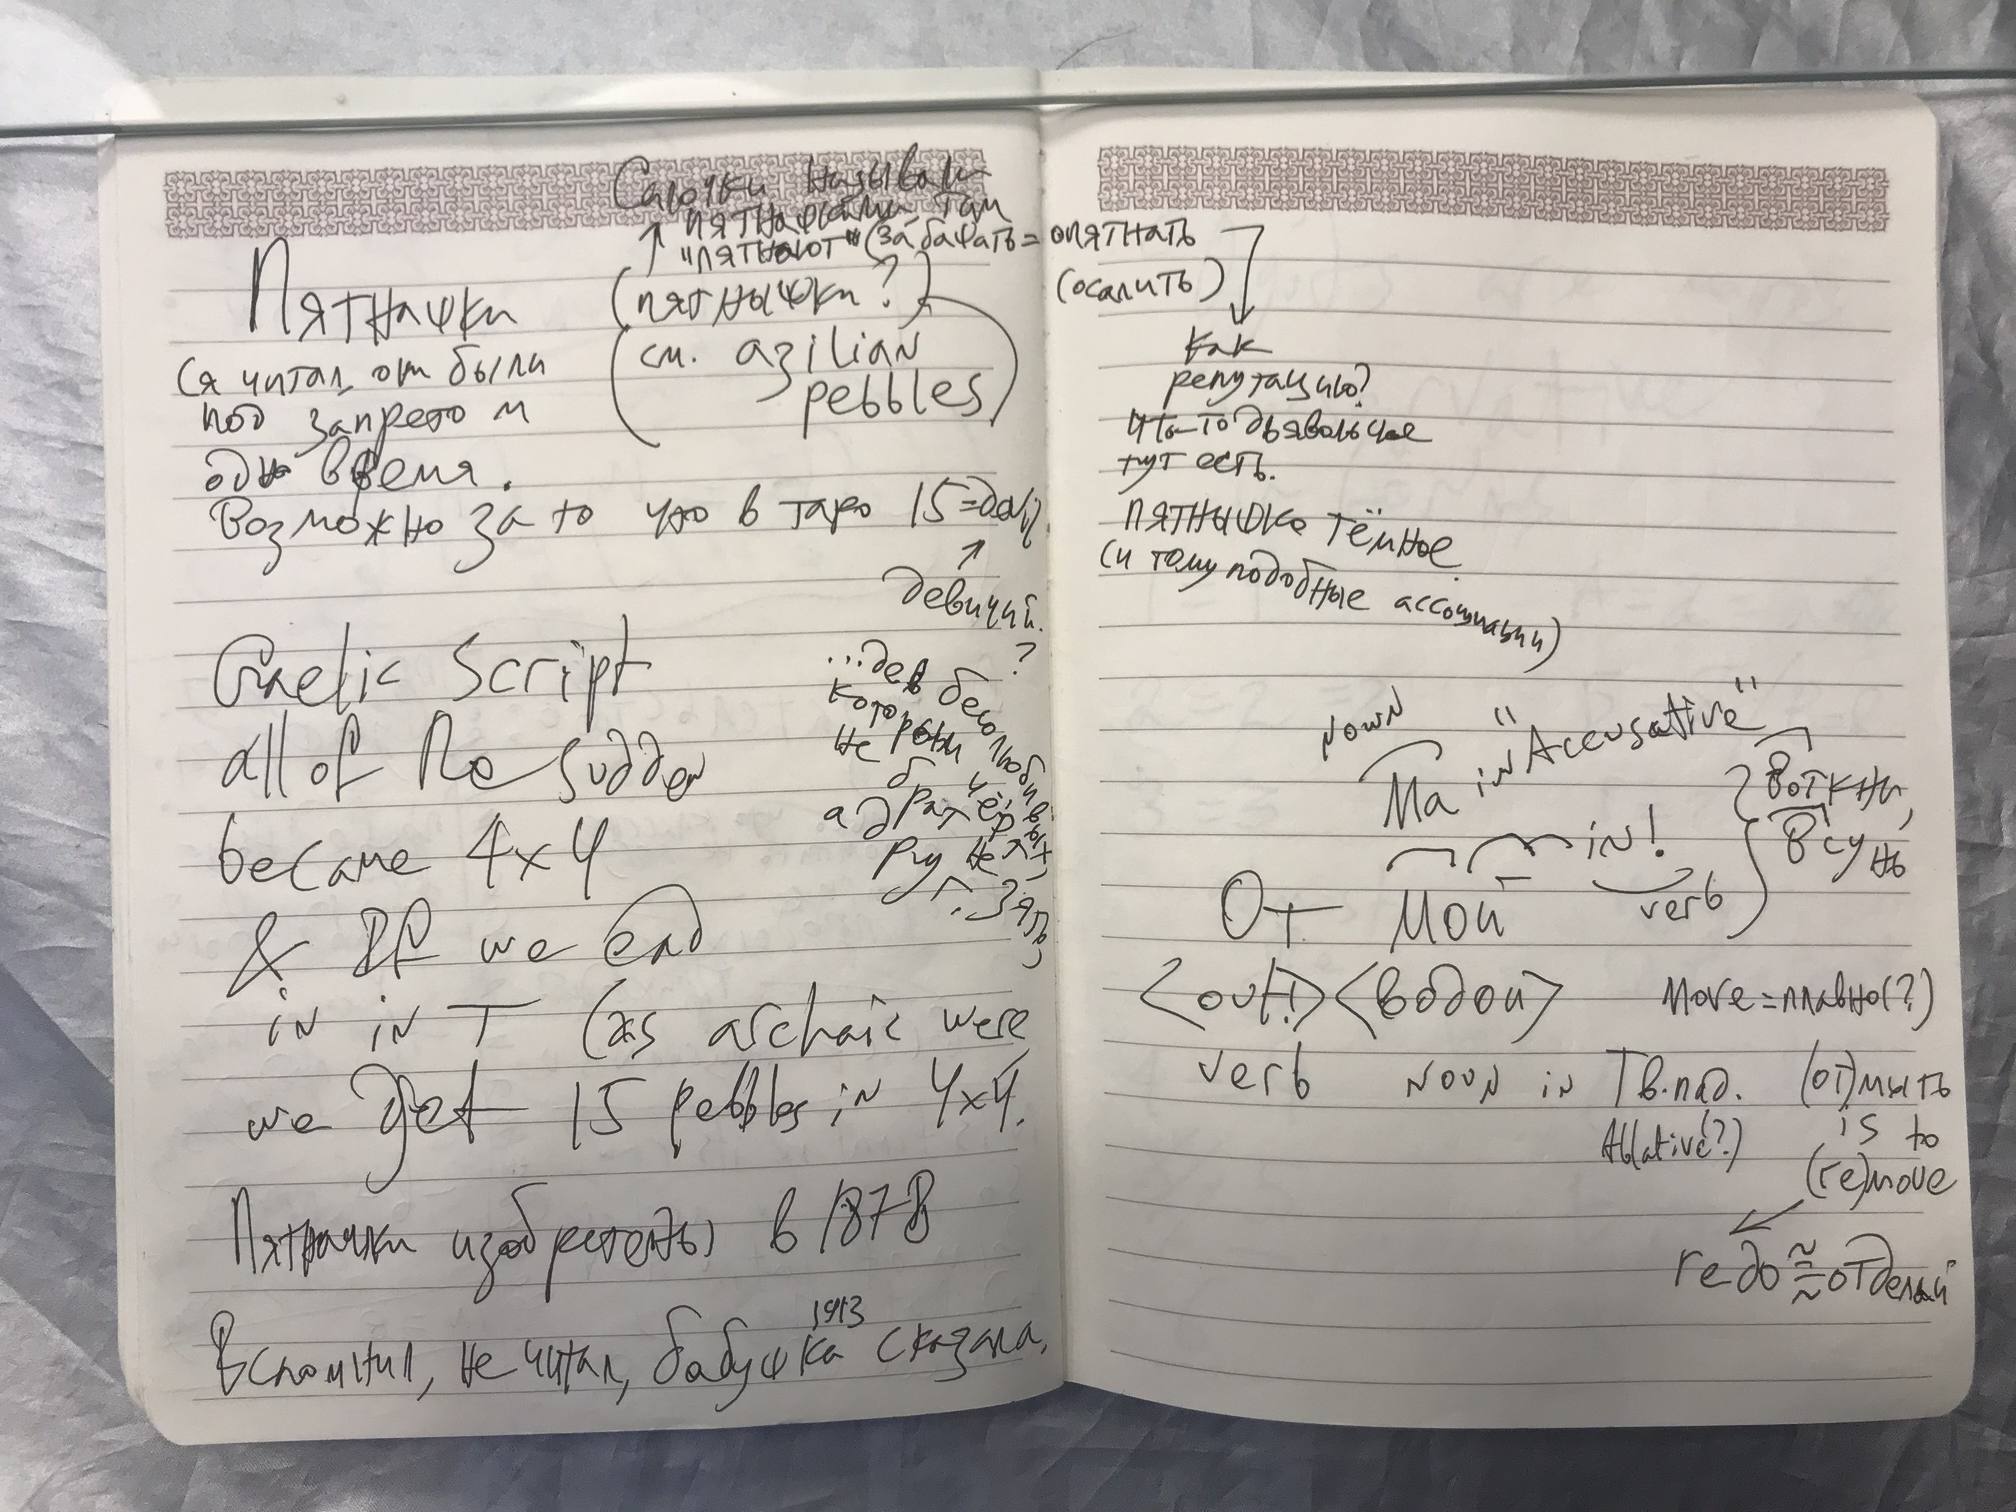 Салочки называли
пятнашками, там
"пятнают" (забашать = опятнать
(осалить)
Пятнашки
(пятнышки?)
(см. azilian
pebbles)
(я читал, он были
под запретом
одно время.
Возможно за то что в таро 15=
девичий.
?
...дев бесолюбивых,
которых чёрт
не брат
а друг не
Gaelic Script
all of the sudden
became 4x4
& If we end
in in T (as archaic were
we get 15 pebbles in 4x4.
Пятнашки изобретены в 1878
1913
Вспомнил, не читал, бабушка сказала,
как
репутацию?
Что-то дьявольское
тут есть.
пятнышко тёмное
(и тому подобные ассоциации)
noun
Ma in "Accusative"
воткни,
всунь
in!
От мой
verb
<out!> <водой>
move = плавно(?)
verb noun in Тв.пад.
Ablative(?)
(от)мыть
is to
(re)move
redo ≈ отделай